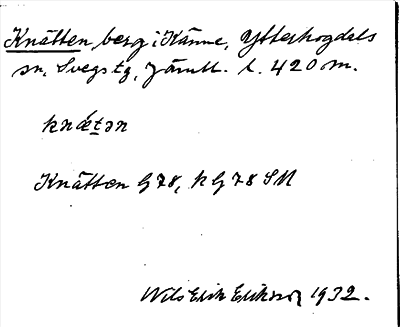 Knätten, berg i Känne, Ytterhogdals
sn, Svegs tg, Jämtl. l. 420 m.
knǽtən
Knätten G 78, k G 78 SM
Nils Erik Eriksson 1932.